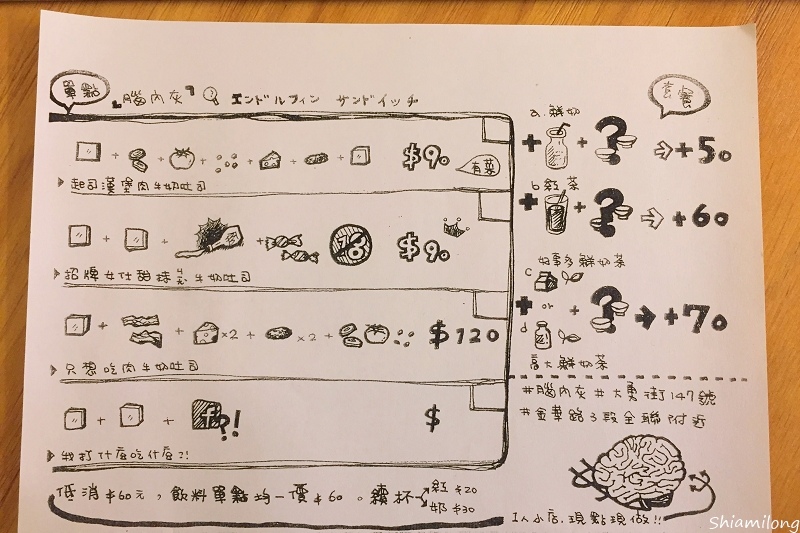 單點
『腦內灰』 エンドルフィン サンドイッチ
$90
有菜
起司漢堡肉牛奶吐司
$90
招牌女仕甜辣牛奶吐司
×2 + ×2 +
$120
只想吃肉牛奶吐司
?!
$
我打什麼吃什麼?!
低消$60元，飲料單點均一價$60。續杯
紅$20
奶$30
套餐
a. 鮮奶
+ + ? +50
b. 紅茶
+ + ? +60
好事多鮮奶茶
c
+ or + ? +70
d
高大鮮奶茶
#腦內灰#大勇街147號
#金華路3段全聯附近
1人小店,現點現做!!
Shiamilong